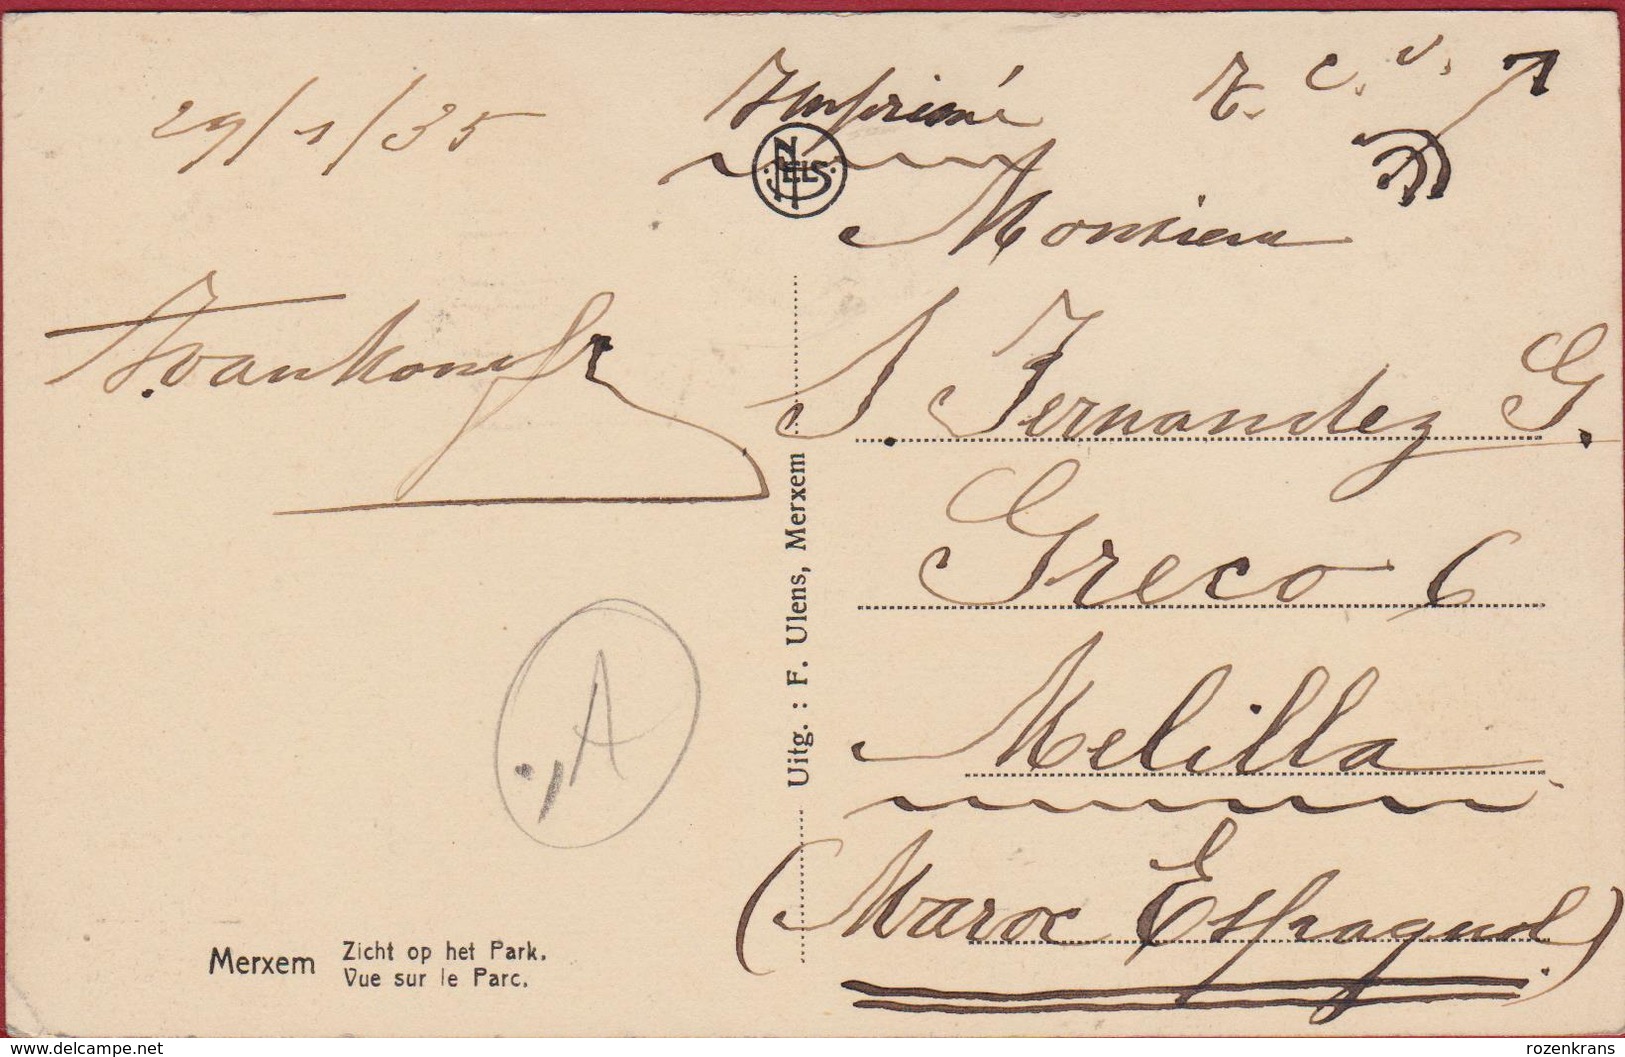 29/1/35
Imprimé
T. C. V.
NELS
Monsieur
S. Fernandez G.
Greco 6
Melilla
(Maroc Espagnol)
A
Uitg. : F. Ulens, Merxem
Merxem Zicht op het Park.
Vue sur le Parc.
www.delcampe.net
rozenkrans